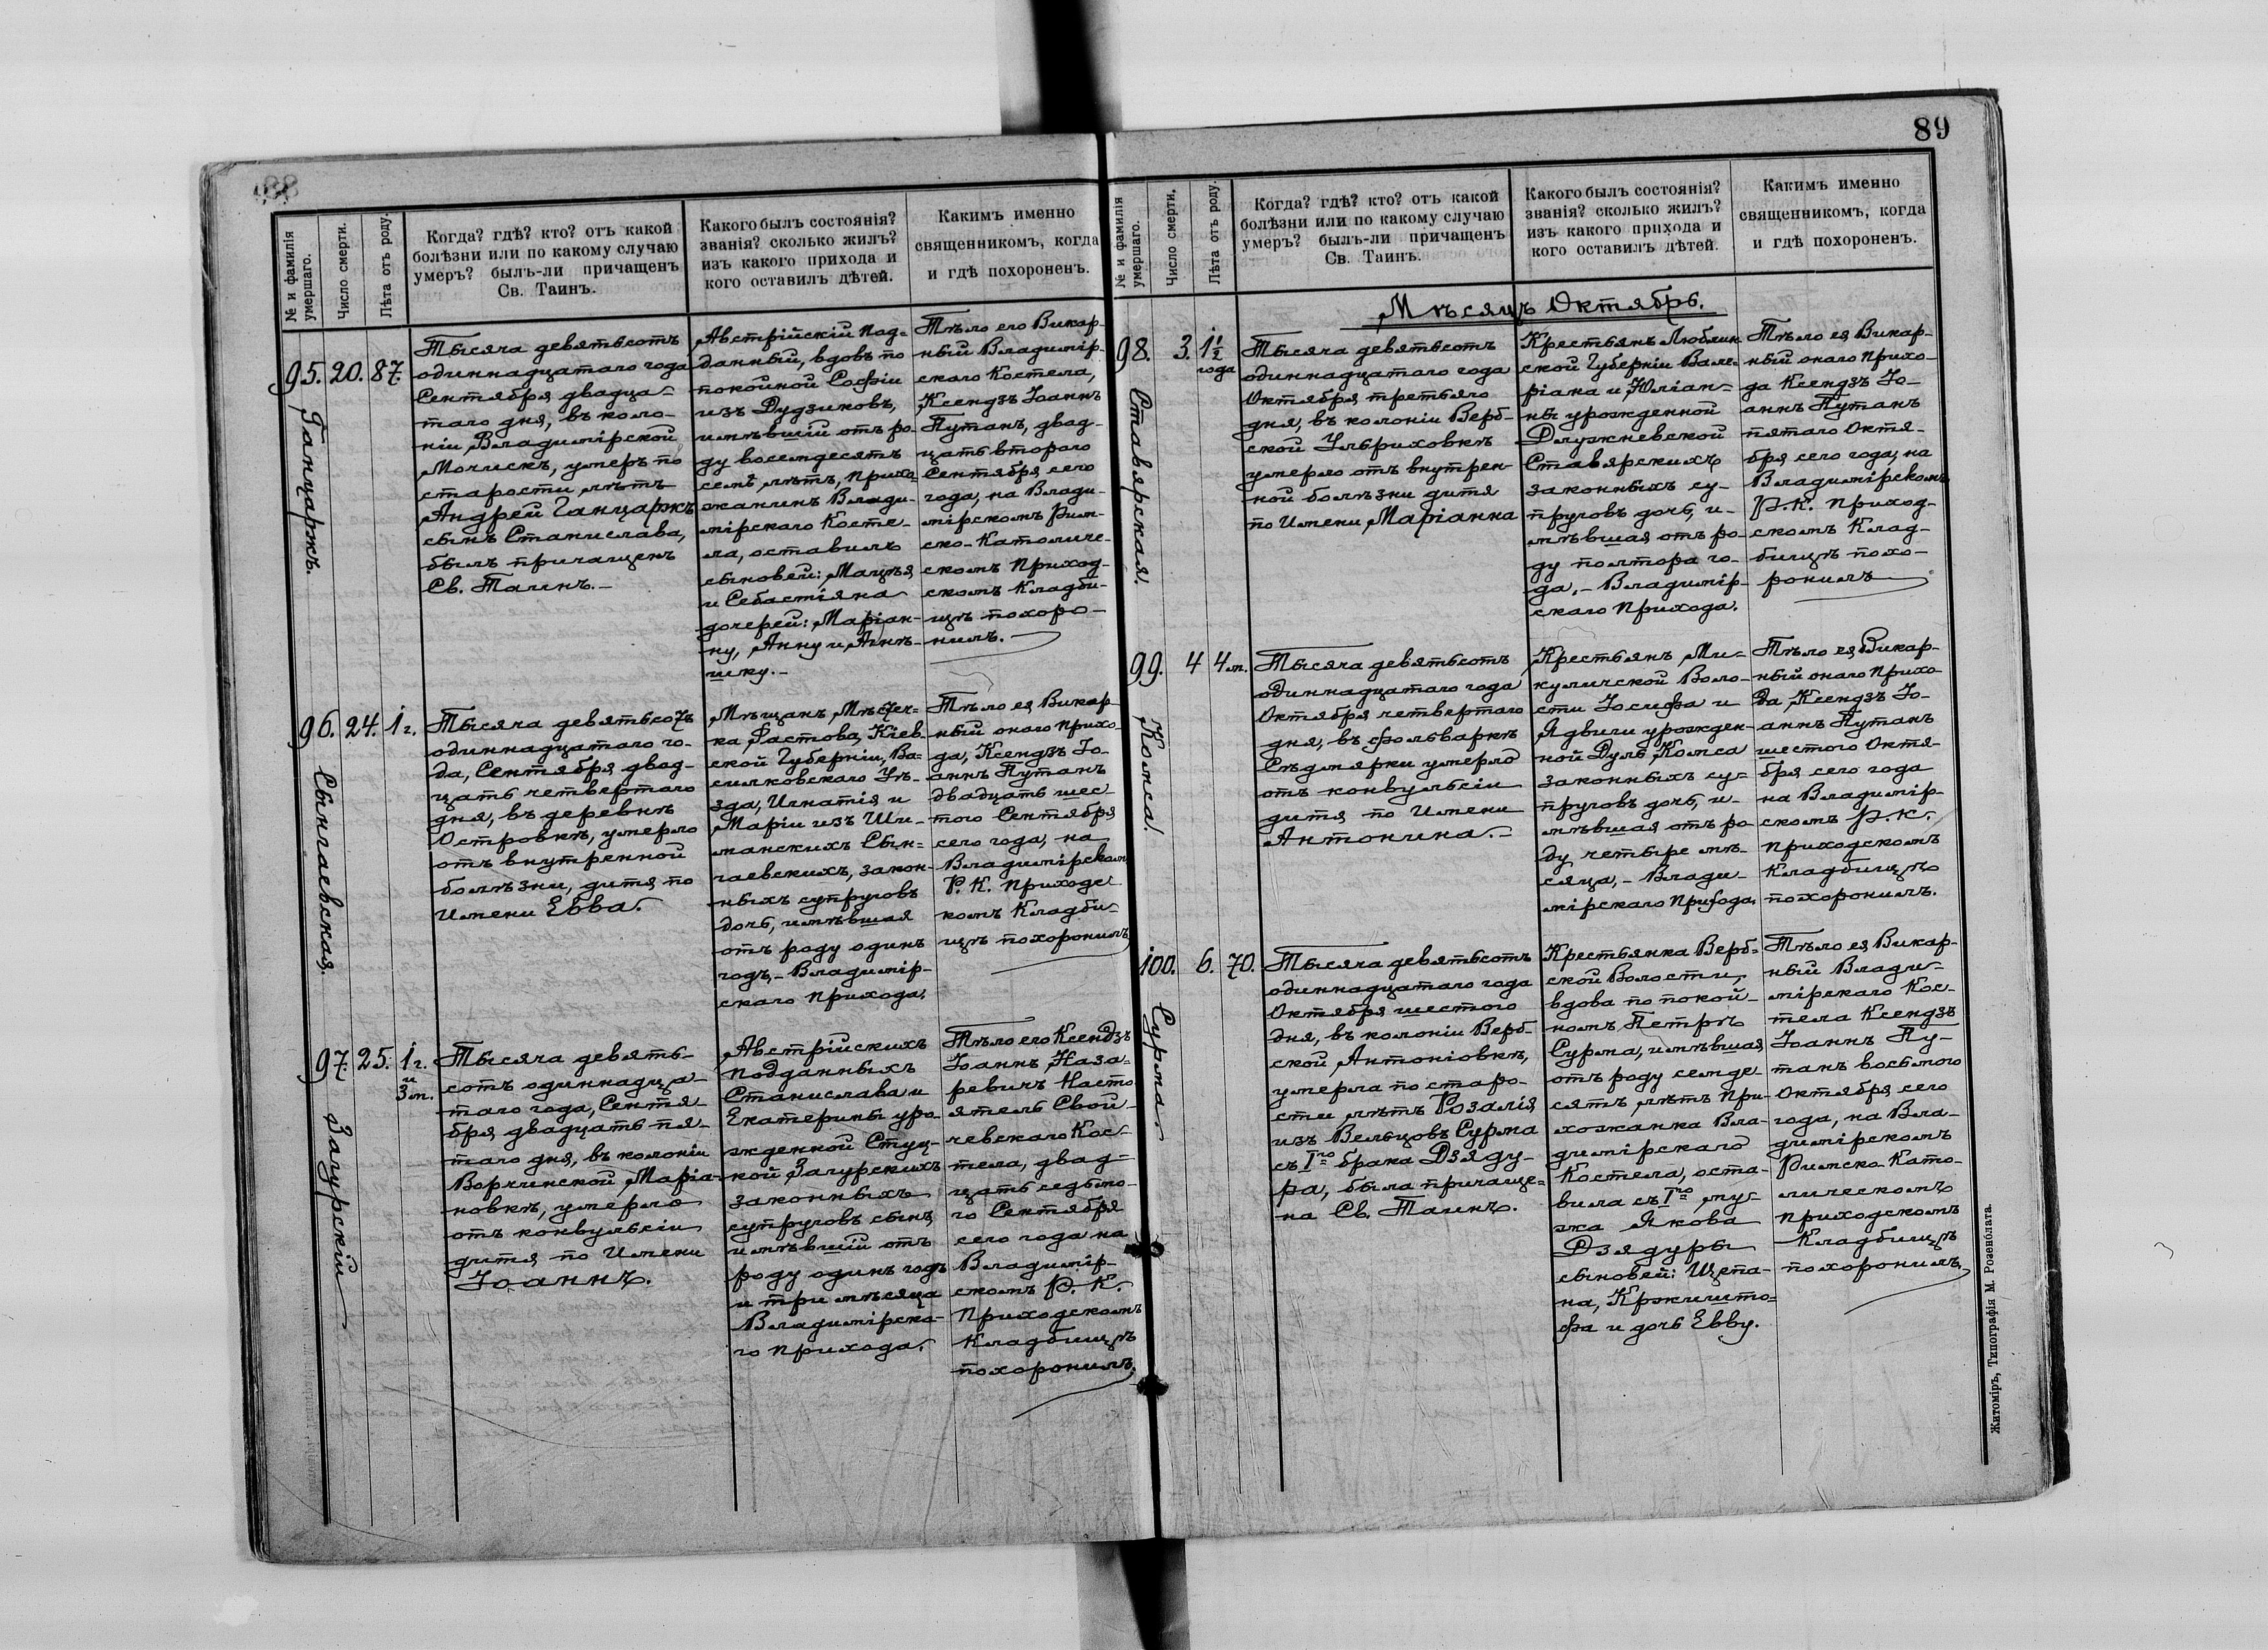 88
№ и фамилія умершаго.
Число смерти.
Лѣта отъ роду.
Когда? гдѣ? кто? отъ какой
болѣзни или по какому случаю
умеръ? былъ-ли причащенъ
Св. Таинъ.
Какого былъ состоянія?
званія? сколько жилъ?
изъ какого прихода и
кого оставилъ дѣтей.
Какимъ именно
священникомъ, когда
и гдѣ похороненъ.
95. 20. 87.
Ганцаржъ.
Тысяча девятьсотъ
одиннадцатаго года
Сентября двадца-
таго дня, въ коло-
ніи Владимірской
Мочискъ, умеръ по
старости лѣтъ
Андрей Ганцаржъ
сынъ Станислава,
былъ причащенъ
Св. Таинъ.-
Австрійскій под-
данный, вдовъ по
покойной Софіи
изъ Дудзиковъ,
имѣвшій отъ ро-
ду восемдесятъ
семь лѣтъ, прихо-
жанинъ Влади-
мірскаго Косте-
ла, оставилъ
сыновей: Мацѣя
и Себастіяна
дочерей: Маріан-
ну, Анну и Агнѣ-
шку.-
Тѣло его Викар-
ный Владимір-
скаго Костела,
Ксендзъ Іоаннъ
Путанъ, двад-
цать второго
Сентября сего
года, на Влади-
мірскомъ Рим-
ско-Католиче-
скомъ Приход-
скомъ Кладби-
щѣ похоро-
нилъ.
96. 24. 1 г.
Сынгаевская.
Тысяча девятьсотъ
одиннадцатаго го-
да, Сентября двад-
цать четвертаго
дня, въ деревнѣ
Островкѣ, умерло
отъ внутренной
болѣзни, дитя по
Имени Евва.
Мѣщанъ Мѣстеч-
ка Фастова, Кіев-
ской Губерніи, Ва-
силковскаго Уѣ-
зда, Игнатія и
Маріи изъ Ши-
манскихъ Сын-
гаевскихъ, закон-
ныхъ супруговъ
дочь, имѣвшая
отъ роду одинъ
годъ,- Владимір-
скаго прихода.
Тѣло ея Викар-
ный онаго Прихо-
да, Ксендзъ Іо-
аннъ Путанъ
двадцать шес
того Сентября
сего года, на
Владимірскомъ
Р. К. Приходс
комъ Кладби-
щѣ похоронилъ
97. 25. 1 г. и 3 м.
Загурскій
Тысяча девять-
сотъ одиннадца-
таго года, Сентя-
бря двадцать пя-
таго дня, въ колоніи
Ворчинской Маріа-
новкѣ, умерло
отъ конвульсіи
дитя по Имени
Іоаннъ.
Австрійскихъ
подданныхъ
Станислава и
Екатерины уро-
жденной Стуц-
кой Загурскихъ
законныхъ
супруговъ сынъ,
имѣвшій отъ
роду одинъ годъ
и три мѣсяца
Владимірска-
го прихода.
Тѣло его Ксендзъ
Іоаннъ Наза-
ревичъ Насто-
ятель Свой-
чевскаго Кос-
тела, двад-
цать седьмо-
го Сентября
сего года на
Владимір-
скомъ Р. К.
Приходскомъ
Кладбищѣ
похоронилъ.
89
№ и фамилія умершаго.
Число смерти.
Лѣта отъ роду.
Когда? гдѣ? кто? отъ какой
болѣзни или по какому случаю
умеръ? былъ-ли причащенъ
Св. Таинъ.
Какого былъ состоянія?
званія? сколько жилъ?
изъ какого прихода и
кого оставилъ дѣтей.
Какимъ именно
священникомъ, когда
и гдѣ похороненъ.
Мѣсяцъ Октябрь.
98. 3. 1 1/2 года
Ставярская.
Тысяча девятьсотъ
одиннадцатаго года
Октября третьяго
дня, въ колоніи Верб-
ской Ульриховкѣ
умерло отъ внутрен-
ной болѣзни дитя
по Имени Маріанна
Крестьянъ Люблин
ской Губерніи Вале-
ріана и Юліан-
ны урожденной
Длужневской
Ставярскихъ
законныхъ су-
пруговъ дочь, и-
мѣвшая отъ ро-
ду полтора го-
да,- Владимір-
скаго Прихода.
Тѣло ея Викар-
ный онаго Прихо-
да Ксендзъ Іо-
аннъ Путанъ
пятаго Октя-
бря сего года, на
Владимірскомъ
Р.К. Приход-
скомъ Клад-
бищѣ похо-
ронилъ
99. 4 4 м.
Комса.
Тысяча девятьсотъ
одиннадцатаго года
Октября четвертаго
дня, въ фольваркѣ
Сѣдмярки умерло
отъ конвульсіи
дитя по Имени
Антонина.-
Крестьянъ Ми-
куличской Воло-
сти Іосифа и
Ядвиги урожден-
ной Дуль Комса
законныхъ су-
пруговъ дочь, и-
мѣвшая отъ ро
ду четыре мѣ-
сяца,- Влади-
мірскаго Прихода.
Тѣло ея Викар-
ный онаго Прихо
да, Ксендзъ Іо-
аннъ Путанъ
шестого Октя-
бря сего года
на Владимір-
скомъ Р.К.
Приходскомъ
Кладбищѣ
похоронилъ.
100. 6. 70.
Сурма.
Тысяча девятьсотъ
одиннадцатаго года
Октября шестого
дня, въ колоніи Верб-
ской Антоніовкѣ,
умерла по старо-
сти лѣтъ Розалія
изъ Вельцовъ Сурма
съ Iго брака Дзяду-
ра, была причаще-
на Св. Таинъ.
Крестьянка Верб-
ской Волости,
вдова по покой-
номъ Петрѣ
Сурма, имѣвшая
отъ роду семде
сятъ лѣтъ При-
хожанка Вла-
димірскаго
Костела, оста-
вила съ Iго му-
жа Якова
Дзядуры
сыновей: Щепа-
на, Кржишто-
фа и дочь Евву.
Тѣло ея Викар-
ный Влади-
мірскаго Кос-
тела Ксендзъ
Іоаннъ Пу-
танъ восьмого
Октября сего
года, на Вла-
димірскомъ
Римско-Като-
лическомъ
Приходскомъ
Кладбищѣ
похоронилъ.
Житоміръ, Типографія М. Розенблата.